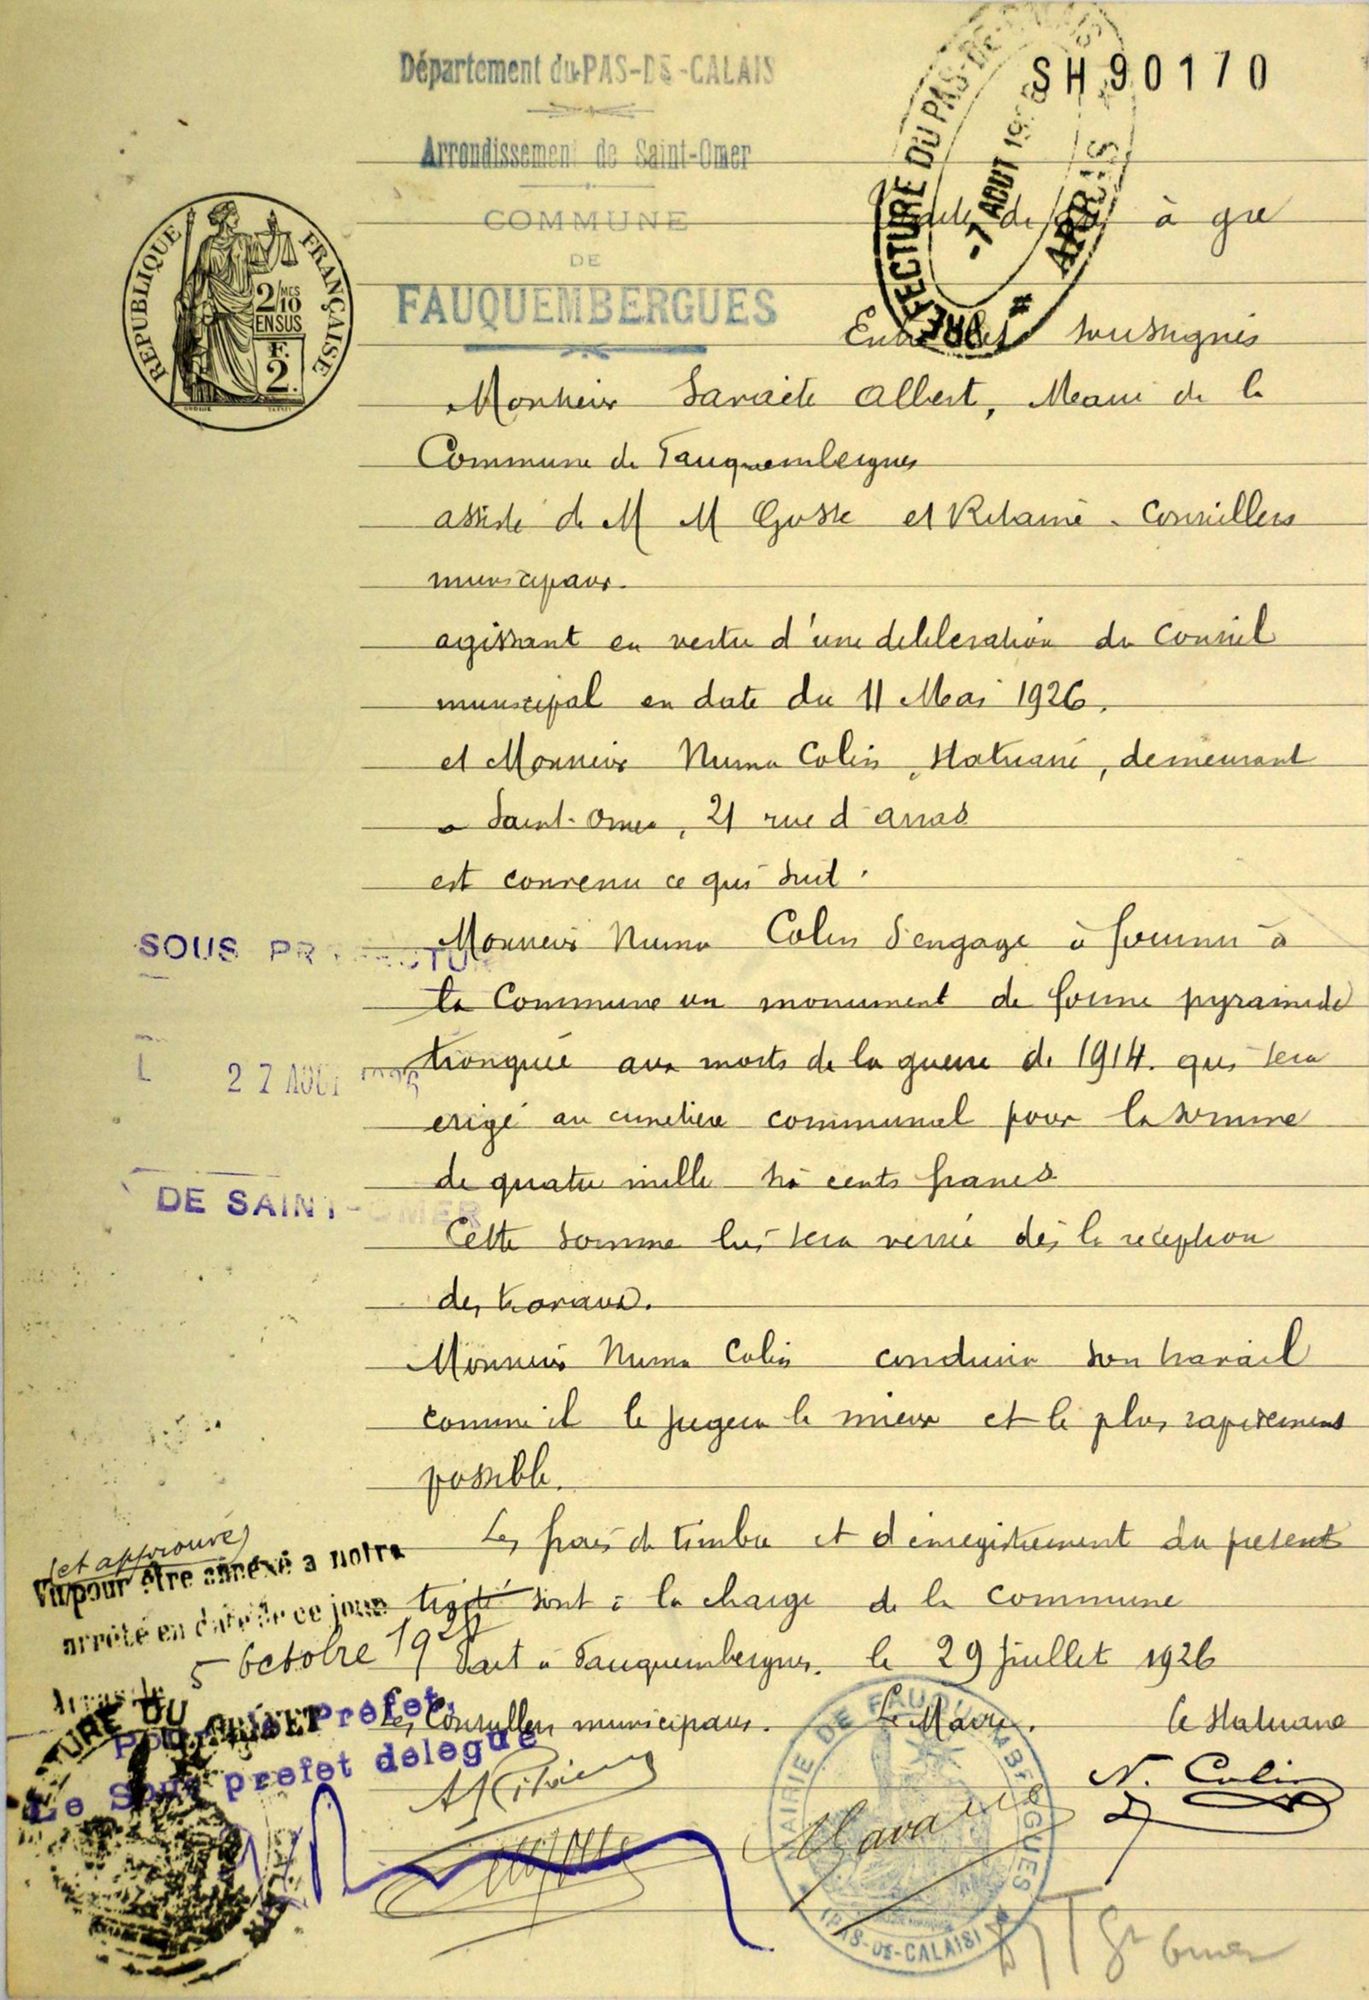 Département du PAS-DE-CALAIS
SH90170
Arrondissement de Saint-Omer
COMMUNE
DE
FAUQUEMBERGUES
PREFECTURE DU PAS-DE-CALAIS
-7 AOUT 1926
ARRAS
REPUBLIQUE FRANÇAISE
2/10 MES
EN SUS
F.
2.
de à gré
Entre les soussignés
Monsieur Albert, Maire de la
Commune de Fauquembergues
assisté de M M Gosse et conseillers
municipaux.
agissant en vertu d'une délibération du Conseil
municipal en date du 11 Mai 1926.
et Monsieur Numa Colin, statuaire, demeurant
à Saint-Omer, 21 rue d'arras
est convenu ce qui suit.
Monsieur Numa Colin s'engage à fournir à
la Commune un monument de forme pyramide
tronquée aux morts de la guerre de 1914. qui sera
érigé au cimetière communal pour la somme
de quatre mille six cents francs
Cette somme lui sera versée dès la réception
des travaux.
Monsieur Numa Colin conduira son travail
comme il le jugera le mieux et le plus rapidement
possible.
Les frais de timbre et d'enregistrement du présent
traité sont à la charge de la commune
Fait à Fauquembergues. le 29 Juillet 1926
Les Conseillers municipaux. Le Maire. le statuaire
N. Colin
SOUS PREFECTURE
27 AOUT 1926
DE SAINT-OMER
(et approuvé)
Vu pour être annexé à notre
arrêté en date de ce jour
5 Octobre
Pour le Préfet,
Le Sous préfet délégué
MAIRIE DE FAUQUEMBERGUES
(PAS-DE-CALAIS)